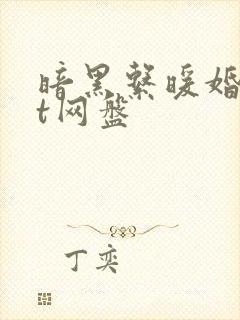 暗黑系暖婚
t网盘
丁奕